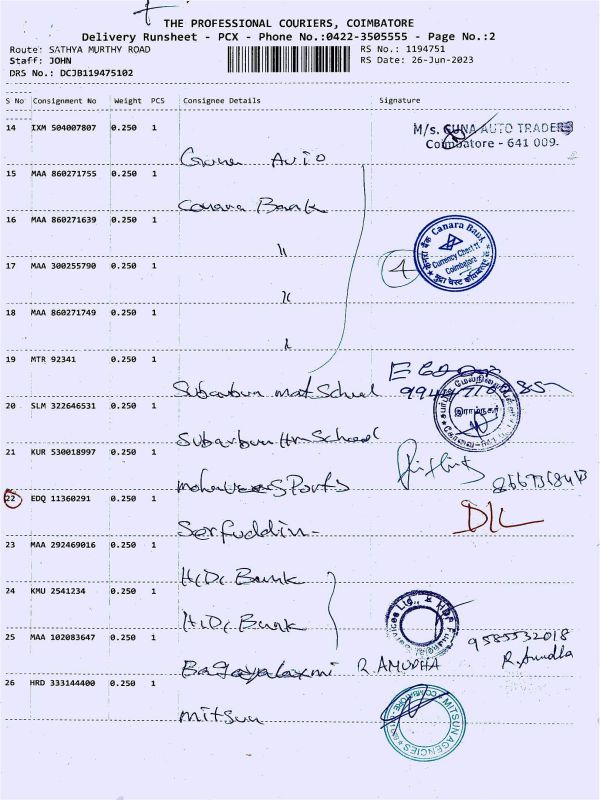 THE PROFESSIONAL COURIERS, COIMBATORE
Delivery Runsheet - PCX - Phone No.:0422-3505555 - Page No.:2
Route: SATHYA MURTHY ROAD RS No.: 1194751
Staff: JOHN RS Date: 26-Jun-2023
DRS No.: DCJB119475102
S No Consignment No Weight PCS Consignee Details Signature
14 IXM 504007807 0.250 1
M/s. GUNA AUTO TRADERS
Coimbatore - 641 009.
Guna Auto
15 MAA 860271755 0.250 1
Canara Bank
16 MAA 860271639 0.250 1
"
Canara Bank
Currency Chest II
Coimbatore
4
17 MAA 300255790 0.250 1
"
18 MAA 860271749 0.250 1
"
19 MTR 92341 0.250 1
Suburbun mat School
20 SLM 322646531 0.250 1
இராம்நகர்
Suburbun Hr School
21 KUR 530018997 0.250 1
Sports
22 EDQ 11360291 0.250 1
D/L
Serfuddin
23 MAA 292469016 0.250 1
HDFC Bank
24 KMU 2541234 0.250 1
HDFC Bank
25 MAA 102083647 0.250 1
9585532018
R. Amudha
Bagayalaxmi R. AMUDHA
26 HRD 333144400 0.250 1
Mitsun
MITSUN AGENCIES
COIMBATORE